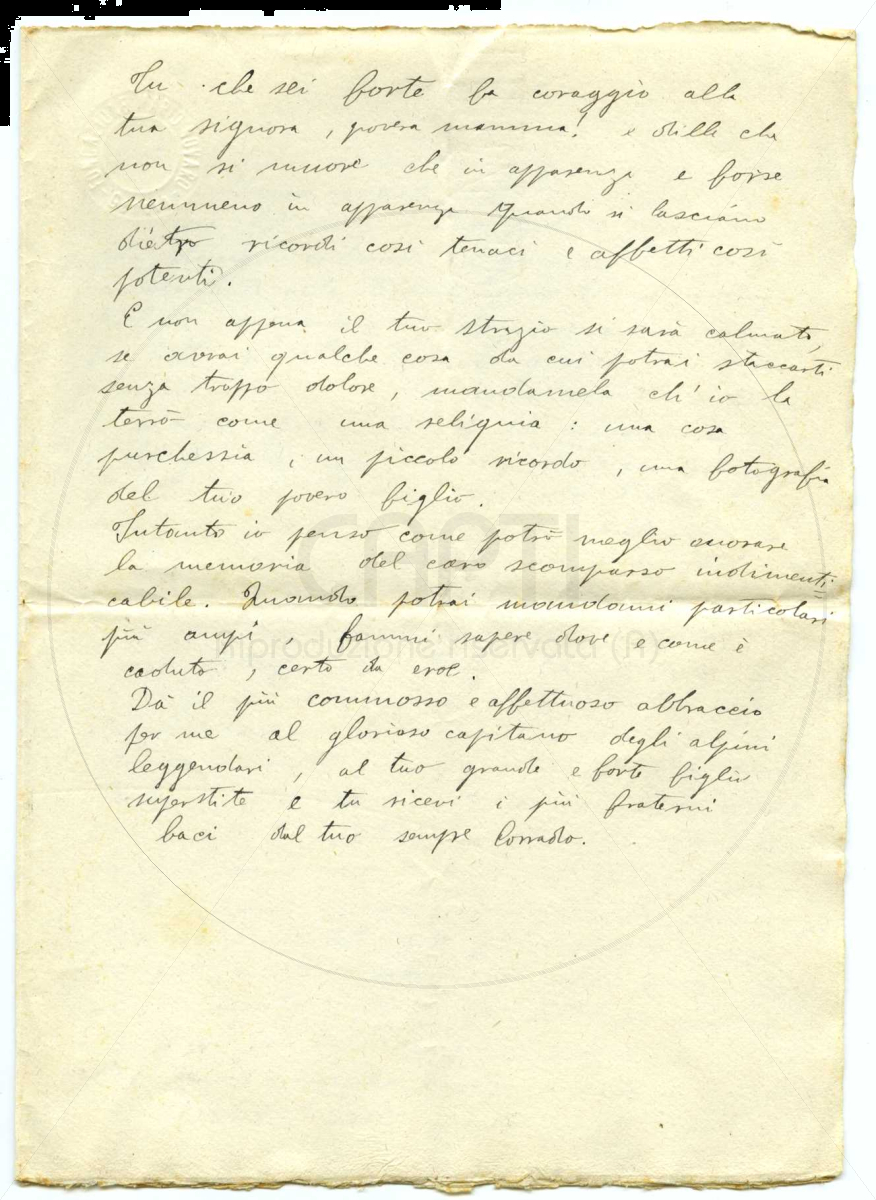 Tu che sei forte fa coraggio alla
tua signora, povera mamma! e dille che
non si muore che in apparenza e forse
nemmeno in apparenza quando si lasciano
dietro ricordi così tenaci e affetti così
potenti.
E non appena il tuo strazio si sarà calmato,
se avrai qualche cosa da cui potrai staccarti
senza troppo dolore, mandamela ch'io la
terrò come una reliquia: una cosa
purchessia, un piccolo ricordo, una fotografia
del tuo povero figlio.
Intanto io penso come potrò meglio onorare
la memoria del caro scomparso indimenti=
cabile. Quando potrai mandami particolari
più ampi, fammi sapere dove e come è
caduto, certo da eroe.
Dà il più commosso e affettuoso abbraccio
per me al glorioso capitano degli alpini
leggendari, al tuo grande e forte figlio
superstite e tu ricevi i più fraterni
baci dal tuo sempre Corrado.
riproduzione riservata (R)